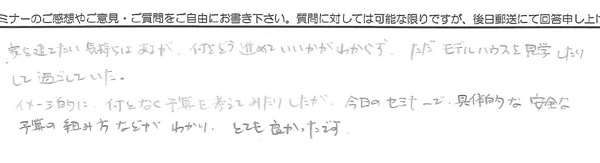 ミナーのご感想やご意見・ご質問をご自由にお書き下さい。質問に対しては可能な限りですが、後日郵送にて回答申し上げ
家を建てたい気持ちはあるが、何をどう進めていいかがわからず、ただモデルハウスを見学したり
して過ごしていた。
イメージ的に、何となく予算を考えてみたりしたが、今日のセミナーで、具体的な安全な
予算の組み方などがわかり、とても良かったです